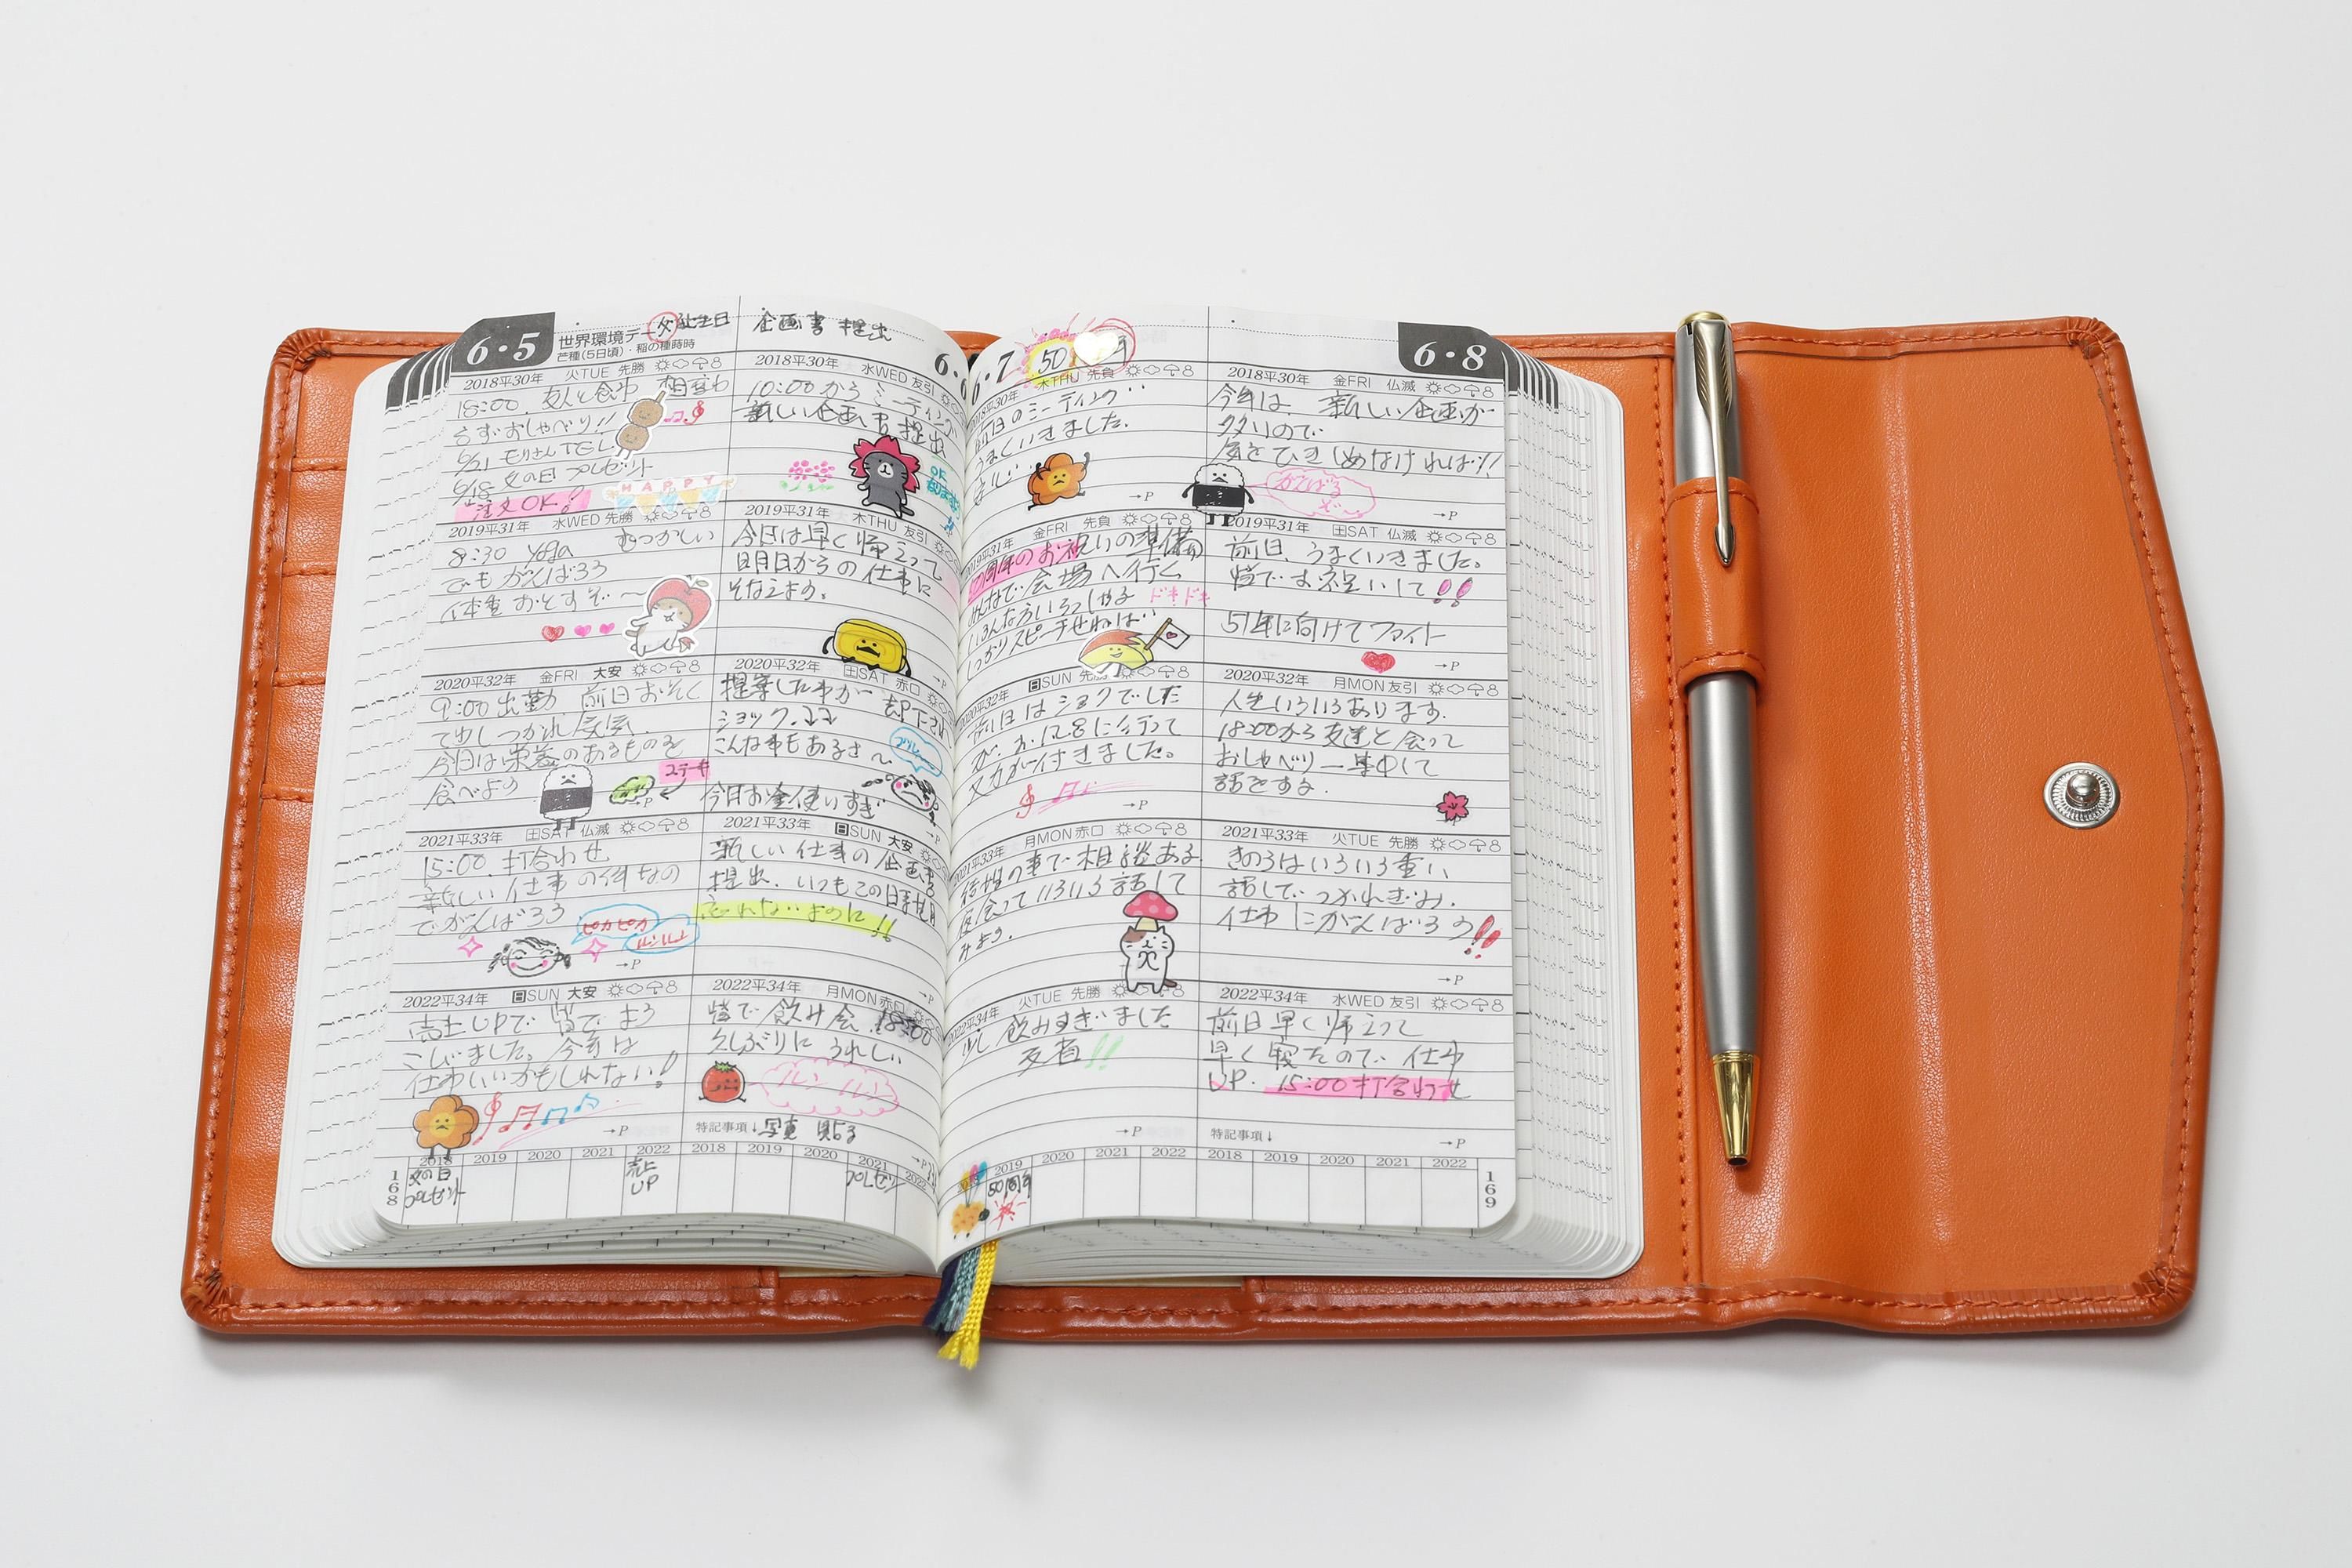 6・5
世界環境デー
芒種(5日頃)・稲の種蒔時
父誕生日
2018平30年 火TUE 先勝
18:00 友人と食事 相変わ
らずおしゃべり!!
6/21 モリさんTEL
6/18 父の日 プレゼント
注文OK!
HAPPY
2019平31年 水WED 先勝
8:30 yoga むつかしい
でもがんばろう
体重おとすぞ〜
2020平32年 金FRI 大安
9:00 出勤 前日おそく
て少しつかれ気味
今日は栄養のあるものを
食べよう
ステーキ
→P
2021平33年 土SAT 仏滅
15:00 打合わせ
新しい仕事の件なの
でがんばろう
ピカピカ
→P
2022平34年 日SUN 大安
売上UPで皆でよろ
こびました。今年は
仕事いいかもしれない!
→P
168
2018 2019 2020 2021 2022
父の日
プレゼント
売上
UP
企画書提出
6・6
2018平30年 水WED 友引
10:00からミーティング
新しい企画書提出
2019平31年 木THU 友引
今日は早く帰って
明日からの仕事に
そなえよう。
2020平32年 土SAT 赤口
提案した事が却下され
ショック
こんな事もあるさ〜
今日お金使いすぎ
→P
2021平33年 日SUN 大安
新しい仕事の企画書
提出、いつもこの日
忘れないように!!
→P
2022平34年 月MON 赤口
皆で飲み会 18:00
久しぶりにうれしい
ルンルン
特記事項↓ 写真貼る
→P
2018 2019 2020 2021 2022
プレゼン
・7
50
2018平30年 木THU 先負
前日のミーティング
うまくいきました。
→P
2019平31年 金FRI 先負
周年のお祝いの準備
みんなで会場へ行く
いろんな方いらっしゃる ドキドキ
しっかりスピーチせねば
2020平32年 日SUN 先勝
前日はショックでした
→P
2021平33年 月MON 赤口
の事で相談ある
会っていろいろ話して
みよう。
2022平34年 火TUE 先勝
少し飲みすぎました
反省!!
→P
2019 2020 2021 2022
50周年
6・8
2018平30年 金FRI 仏滅
今年は、新しい企画が
多いので
気をひきしめなければ!!
がんばる
ぞ〜
→P
2019平31年 土SAT 仏滅
前日、うまくいきました。
皆でお祝いして!!
51年に向けてファイト
→P
2020平32年 月MON 友引
人生いろいろあります。
18:00から友達と会って
おしゃべり 集中して
話をする。
2021平33年 火TUE 先勝
きのうはいろいろ重い
話しでつかれぎみ。
仕事にがんばろう!!
→P
2022平34年 水WED 友引
前日早く帰って
早く寝たので、仕事
UP. 15:00打合わせ
特記事項↓
→P
2018 2019 2020 2021 2022
169